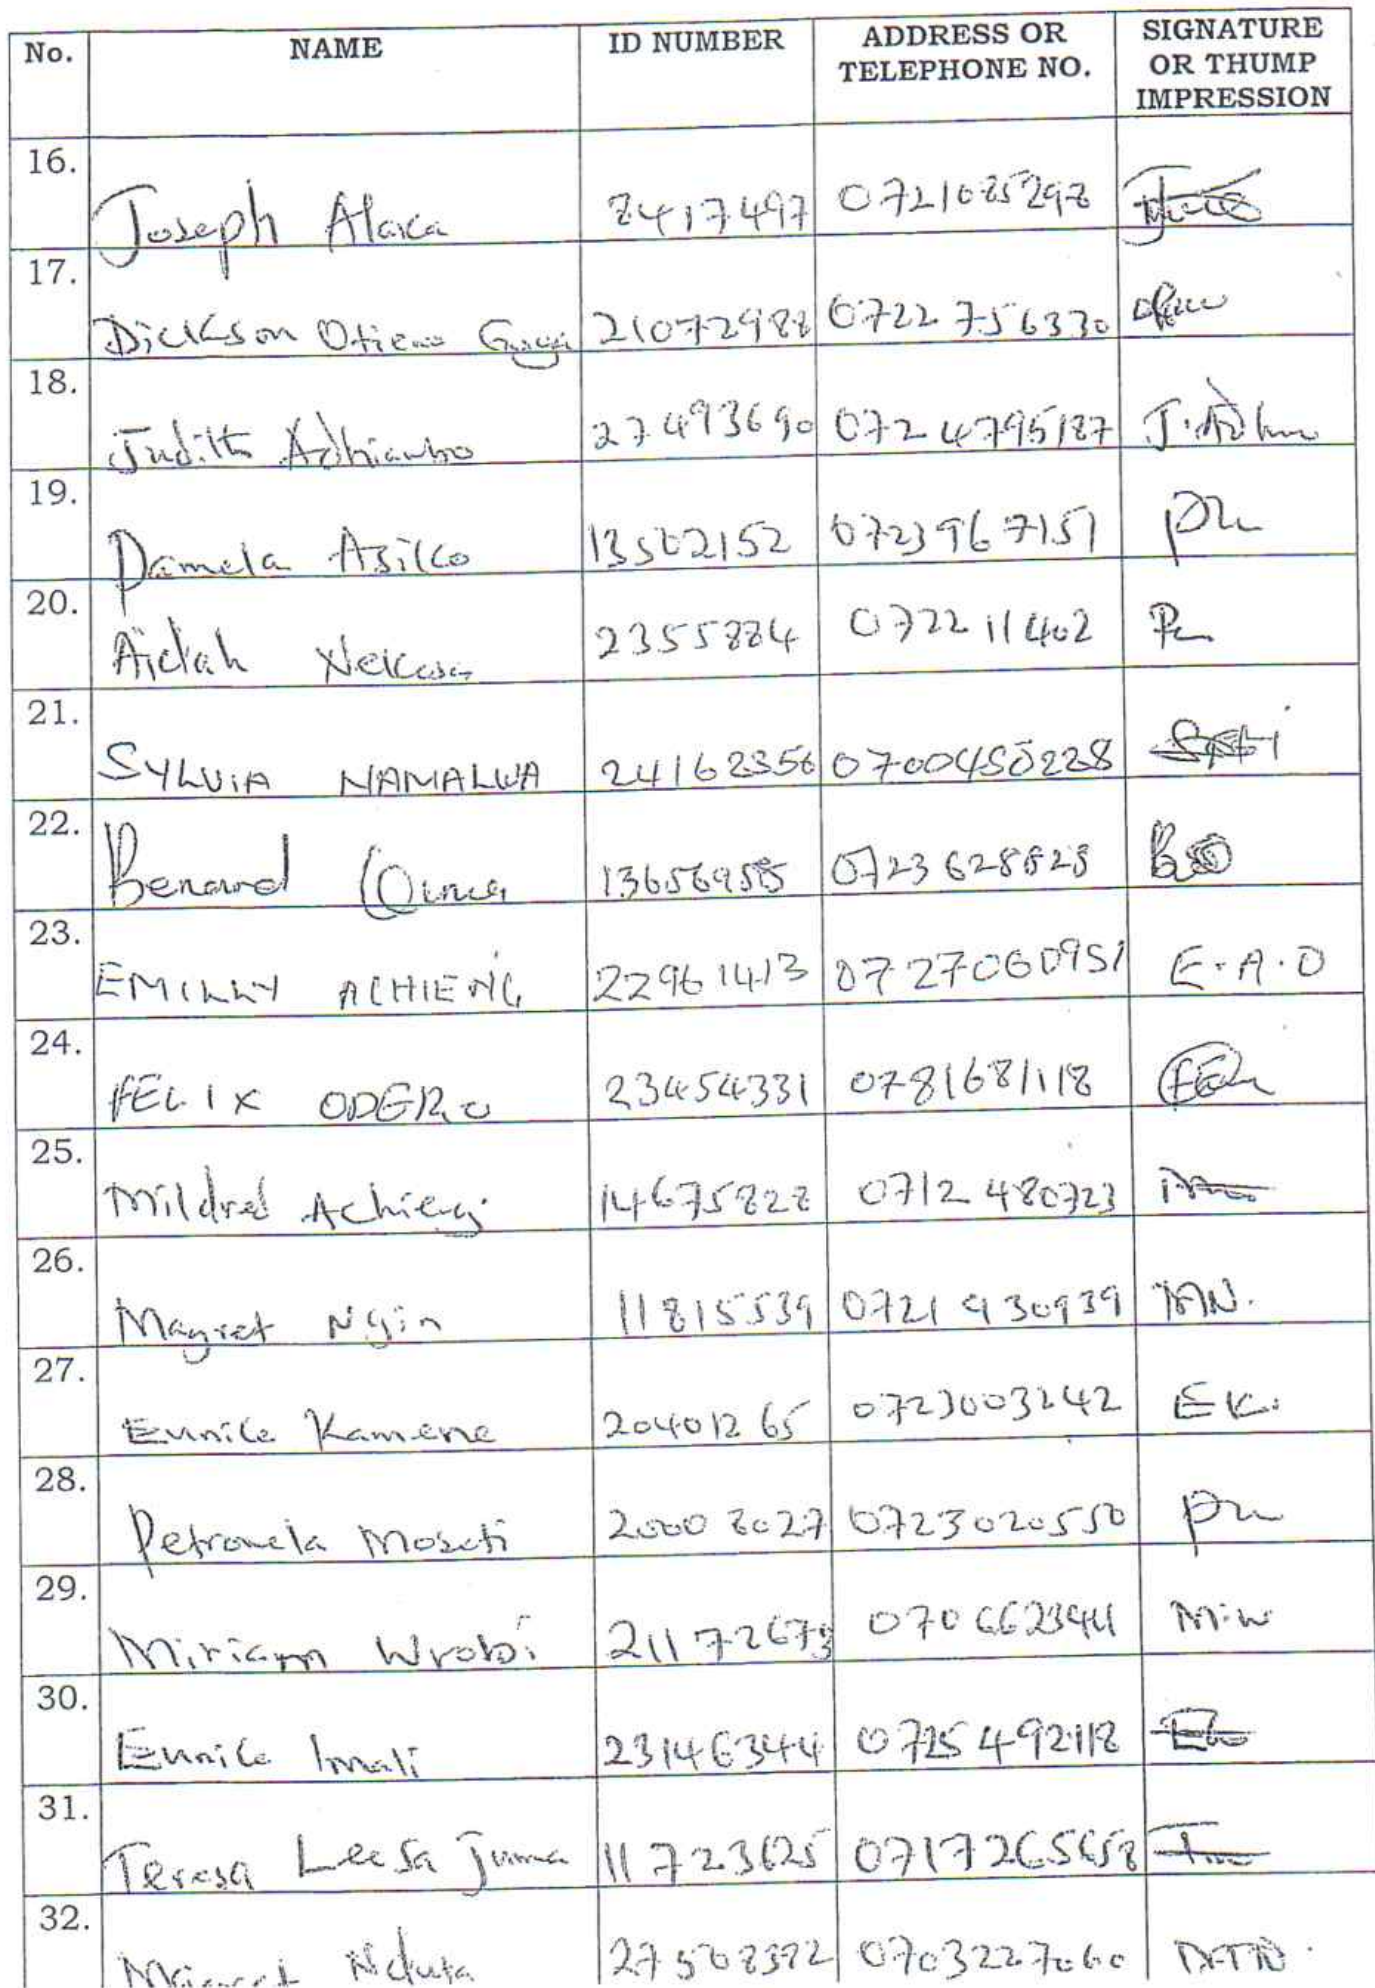 No. NAME ID NUMBER ADDRESS OR TELEPHONE NO. SIGNATURE OR THUMP IMPRESSION
16. Joseph Alaka 8417497 0721085298
17. Dickson Otieno 21072988 0722756330
18. Judith Adhiambo 27493690 0724795187
19. Pamela Asiko 13502152 0723967151
20. Aidah Nekesa 2355884 072211402
21. SYLVIA NAMALWA 24162356 0700450228
22. Benard Ouma 0723628828
23. EMILLY ACHIENG 22961413 0727060951 E.A.O
24. FELIX ODERO 23454331 0781681118
25. Mildred Achieng 14675828 0712480723
26. Magret Ngin 11815539 0721930939 MN.
27. Eunice Kamene 20401265 0723003242 EK.
28. Petronela Moseti 20008027 0723020550
29. Miriam 21172673 M.W
30. Eunice Imali 23146344 0725492118
31. Teresa Leesa Juma 11723625 0717265658
32. Nduta 27508392 0703227060